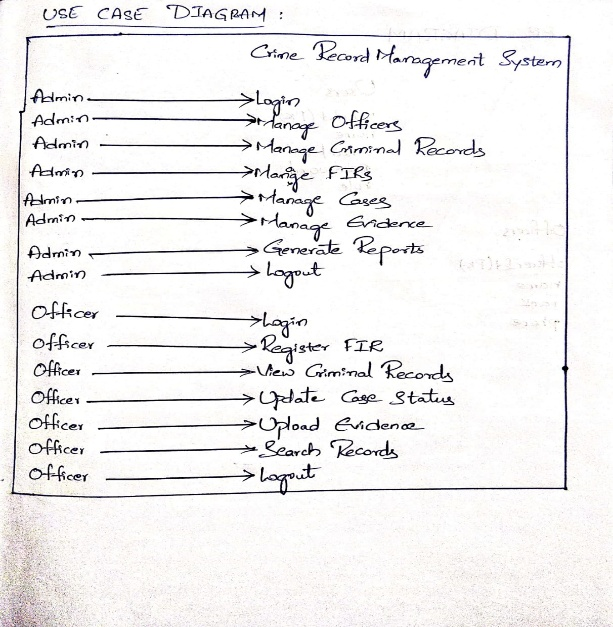 USE CASE DIAGRAM :
Crime Record Management System
Admin → Login
Admin → Manage Officers
Admin → Manage Criminal Records
Admin → Mange FIRs
Admin → Manage Cases
Admin → Manage Evidence
Admin → Generate Reports
Admin → Logout
Officer → Login
Officer → Register FIR
Officer → View Criminal Records
Officer → Update Case Status
Officer → Upload Evidence
Officer → Search Records
Officer → Logout